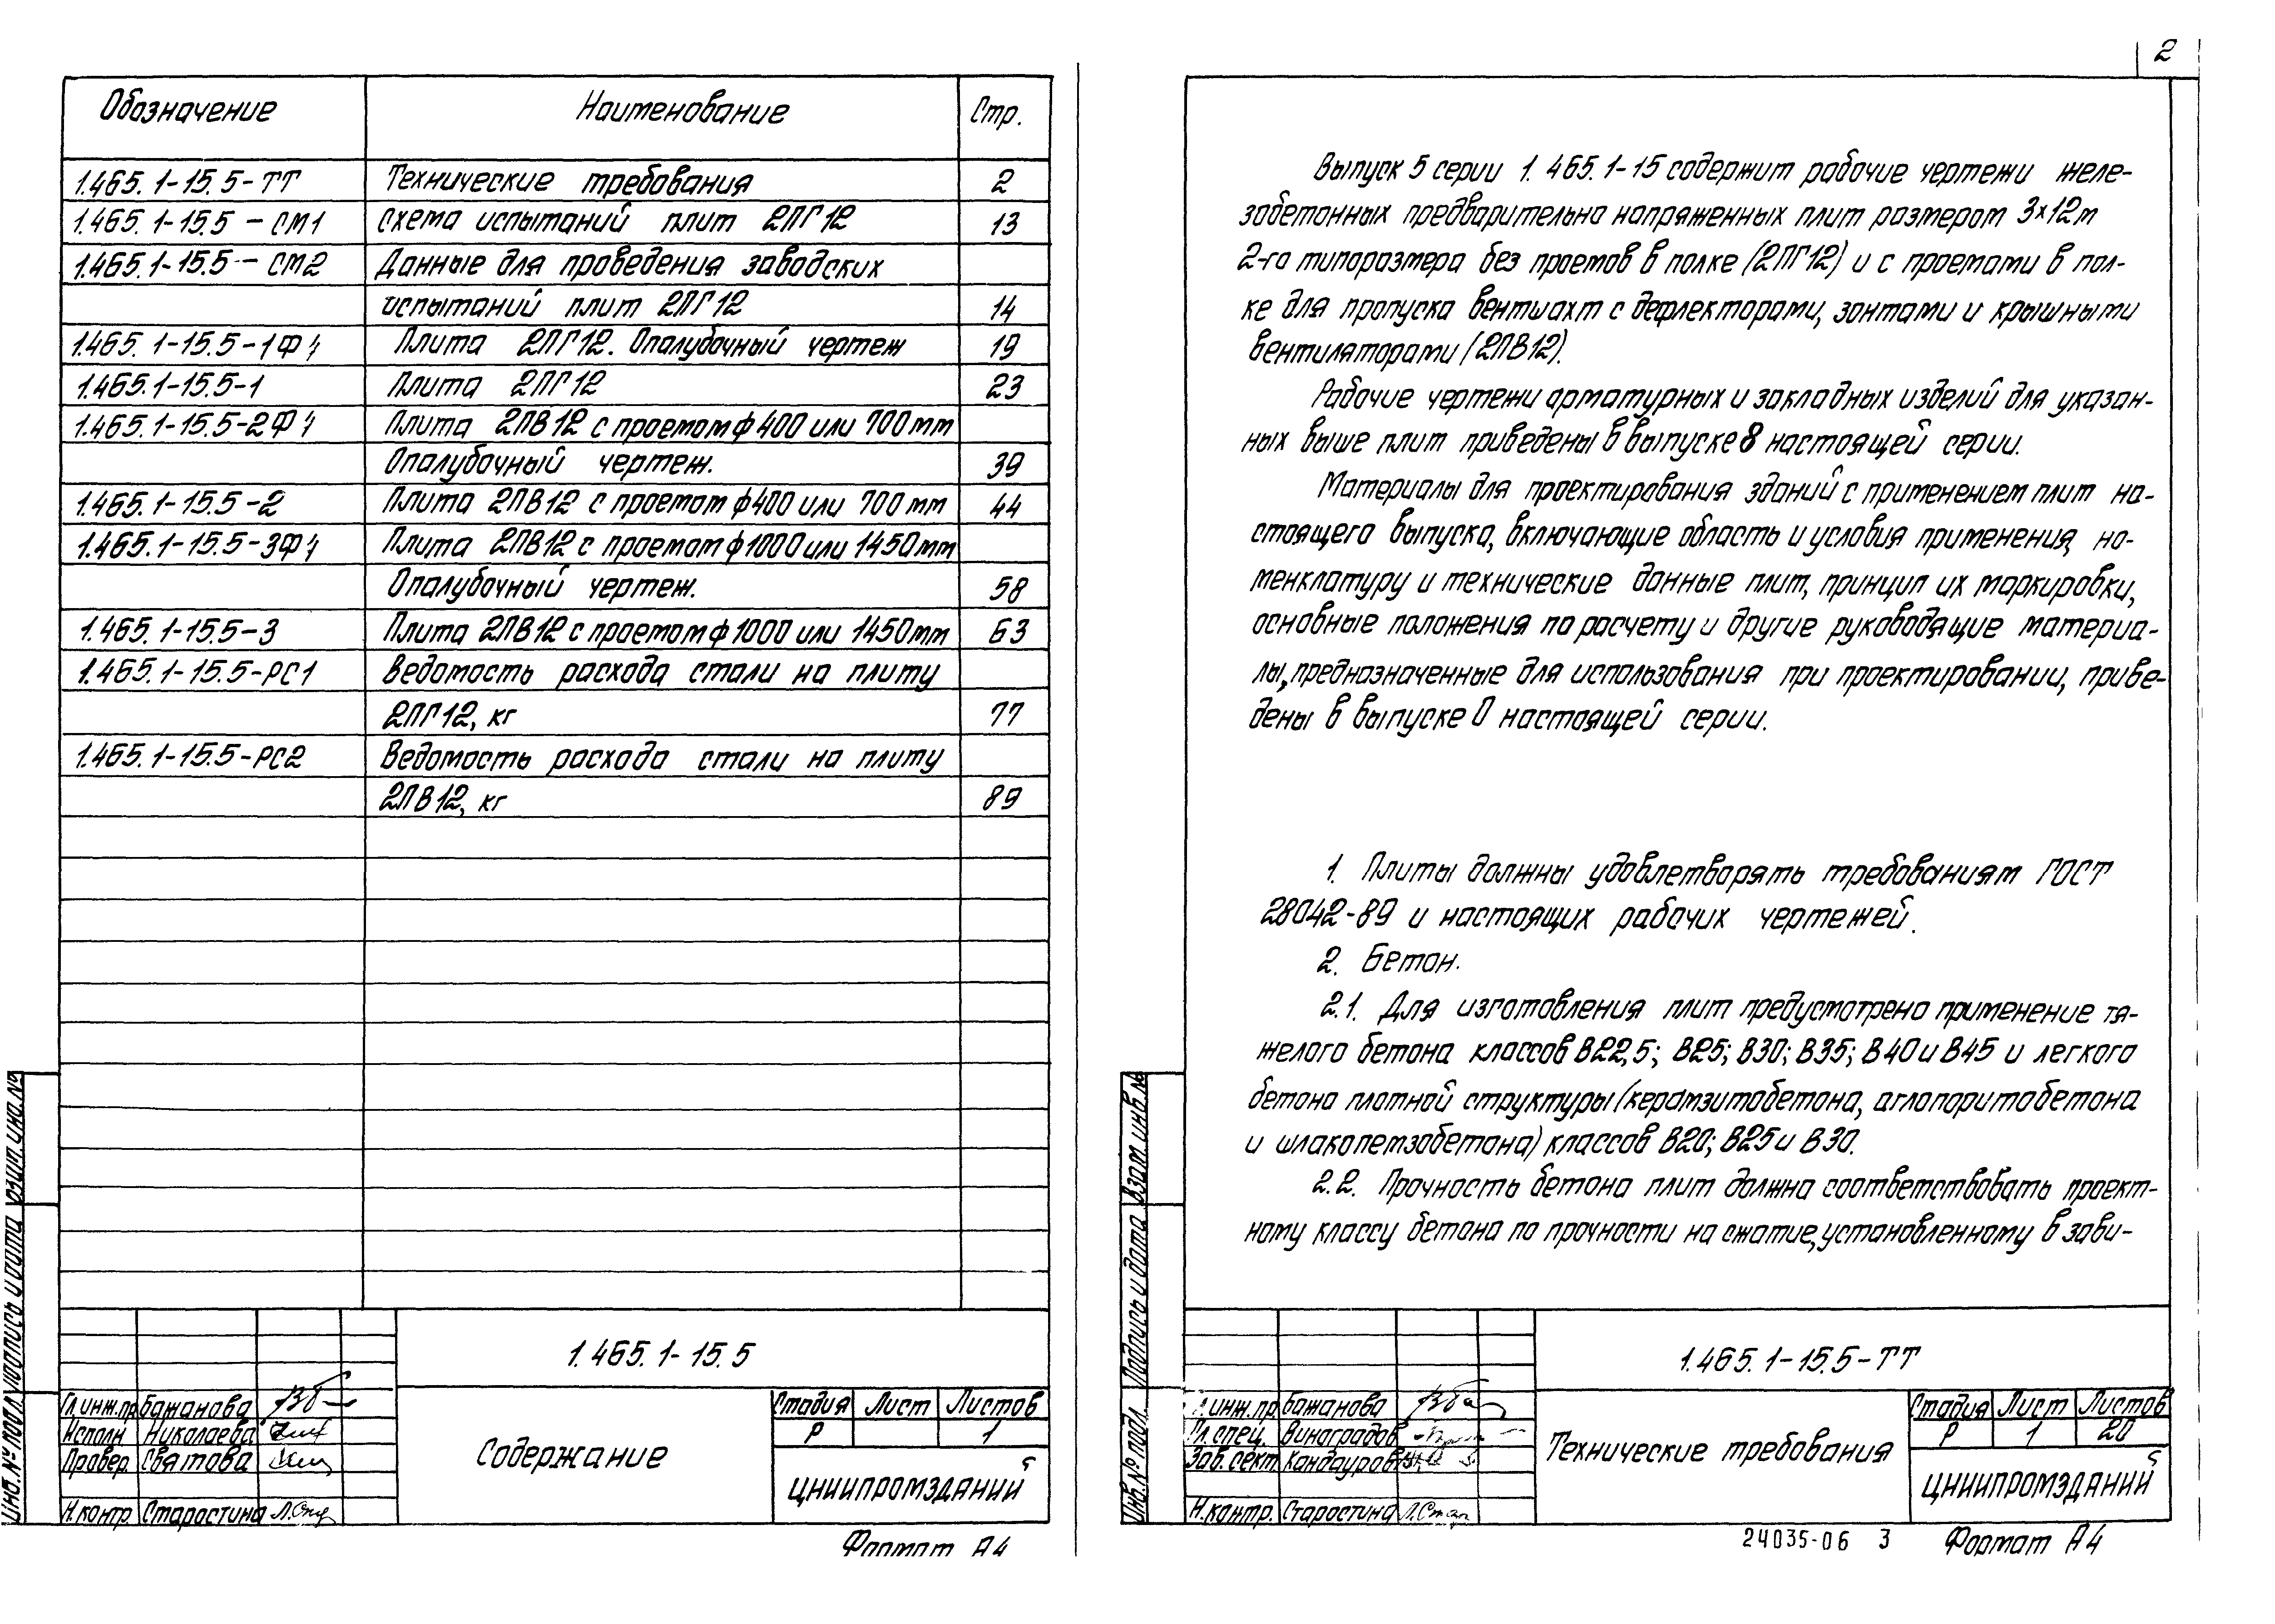 Обозначение Наименование Стр.
1.465.1-15.5-ТТ Технические требования 2
1.465.1-15.5-СМ1 Схема испытаний плит 2ПГ12 13
1.465.1-15.5-СМ2 Данные для проведения заводских
испытаний плит 2ПГ12 14
1.465.1-15.5-1ФЧ Плита 2ПГ12. Опалубочный чертеж 19
1.465.1-15.5-1 Плита 2ПГ12 23
1.465.1-15.5-2ФЧ Плита 2ПВ12 с проемом ф400 или 700мм
Опалубочный чертеж. 39
1.465.1-15.5-2 Плита 2ПВ12 с проемом ф400 или 700мм 44
1.465.1-15.5-3ФЧ Плита 2ПВ12 с проемом ф1000 или 1450мм
Опалубочный чертеж. 58
1.465.1-15.5-3 Плита 2ПВ12 с проемом ф1000 или 1450мм 63
1.465.1-15.5-РС1 Ведомость расхода стали на плиту
2ПГ12, кг 77
1.465.1-15.5-РС2 Ведомость расхода стали на плиту
2ПВ12, кг 89
1.465.1-15.5
Гл.инж.пр. Бажанова
Исполн. Николаева
Провер. Святова
Н.контр. Старостина
Содержание
Стадия Лист Листов
Р 1
ЦНИИПРОМЗДАНИЙ
Инв.№ подл. Подпись и дата Взам. инв.№
Формат А4
2
Выпуск 5 серии 1.465.1-15 содержит рабочие чертежи желе-
зобетонных предварительно напряженных плит размером 3х12м
2-го типоразмера без проемов в полке (2ПГ12) и с проемами в пол-
ке для пропуска вентшахт с дефлекторами, зонтами и крышными
вентиляторами (2ПВ12).
Рабочие чертежи арматурных и закладных изделий для указан-
ных выше плит приведены в выпуске 8 настоящей серии.
Материалы для проектирования зданий с применением плит на-
стоящего выпуска, включающие область и условия применения, но-
менклатуру и технические данные плит, принцип их маркировки,
основные положения по расчету и другие руководящие материа-
лы, предназначенные для использования при проектировании, приве-
дены в выпуске 0 настоящей серии.
1. Плиты должны удовлетворять требованиям ГОСТ
28042-89 и настоящих рабочих чертежей.
2. Бетон.
2.1. Для изготовления плит предусмотрено применение тя-
желого бетона классов В22,5; В25; В30; В35; В40 и В45 и легкого
бетона плотной структуры (керамзитобетона, аглопоритобетона
и шлакопемзобетона) классов В20; В25 и В30.
2.2. Прочность бетона плит должна соответствовать проект-
ному классу бетона по прочности на сжатие, установленному в зави-
1.465.1-15.5-ТТ
Гл.инж.пр. Бажанова
Гл.спец. Виноградов
Зав.сект. Кандауров
Н.контр. Старостина
Технические требования
Стадия Лист Листов
Р 1 20
ЦНИИПРОМЗДАНИЙ
Инв.№ подл. Подпись и дата Взам. инв.№
24035-06 3 Формат А4